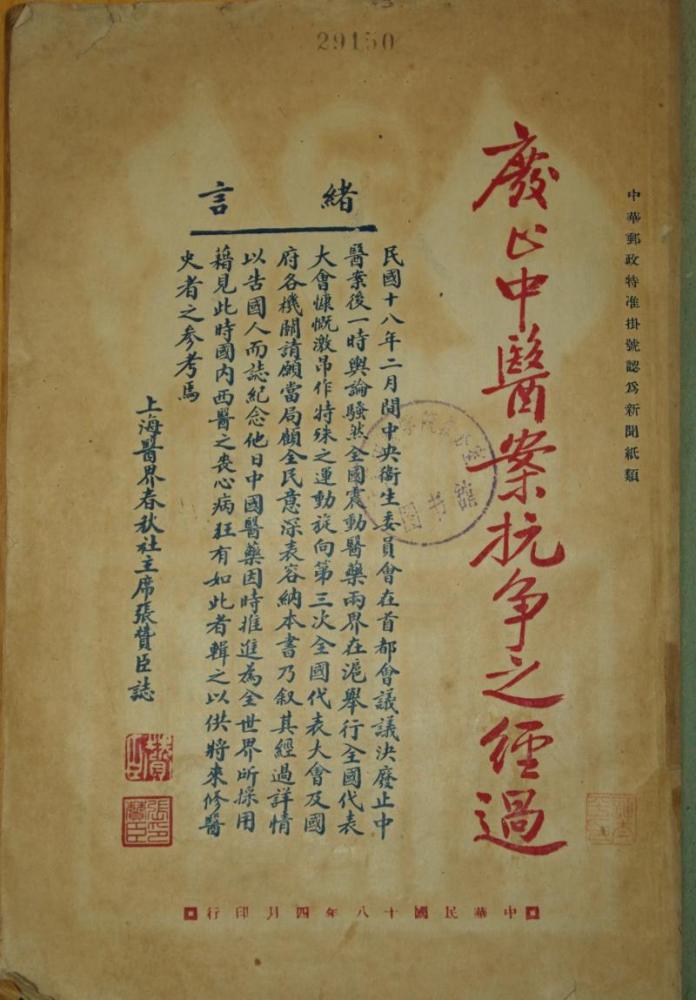 29150
中華郵政特准掛號認爲新聞紙類
廢止中醫案抗争之經過
緒言
民國十八年二月間中央衛生委員會在首都會議議決廢止中
醫案後一時輿論騷然全國震動醫藥兩界在滬舉行全國代表
大會慷慨激昂作特殊之運動旋向第三次全國代表大會及國
府各機關請願當局顧全民意深表容納本書乃叙其經過詳情
以告國人而誌紀念他日中國醫藥因時推進為全世界所採用
藉見此時國内西醫之喪心病狂有如此者輯之以供將來修醫
史者之參考焉
上海醫界春秋社主席張贊臣誌
張印
贊臣
图书馆
中華民國十八年四月印行